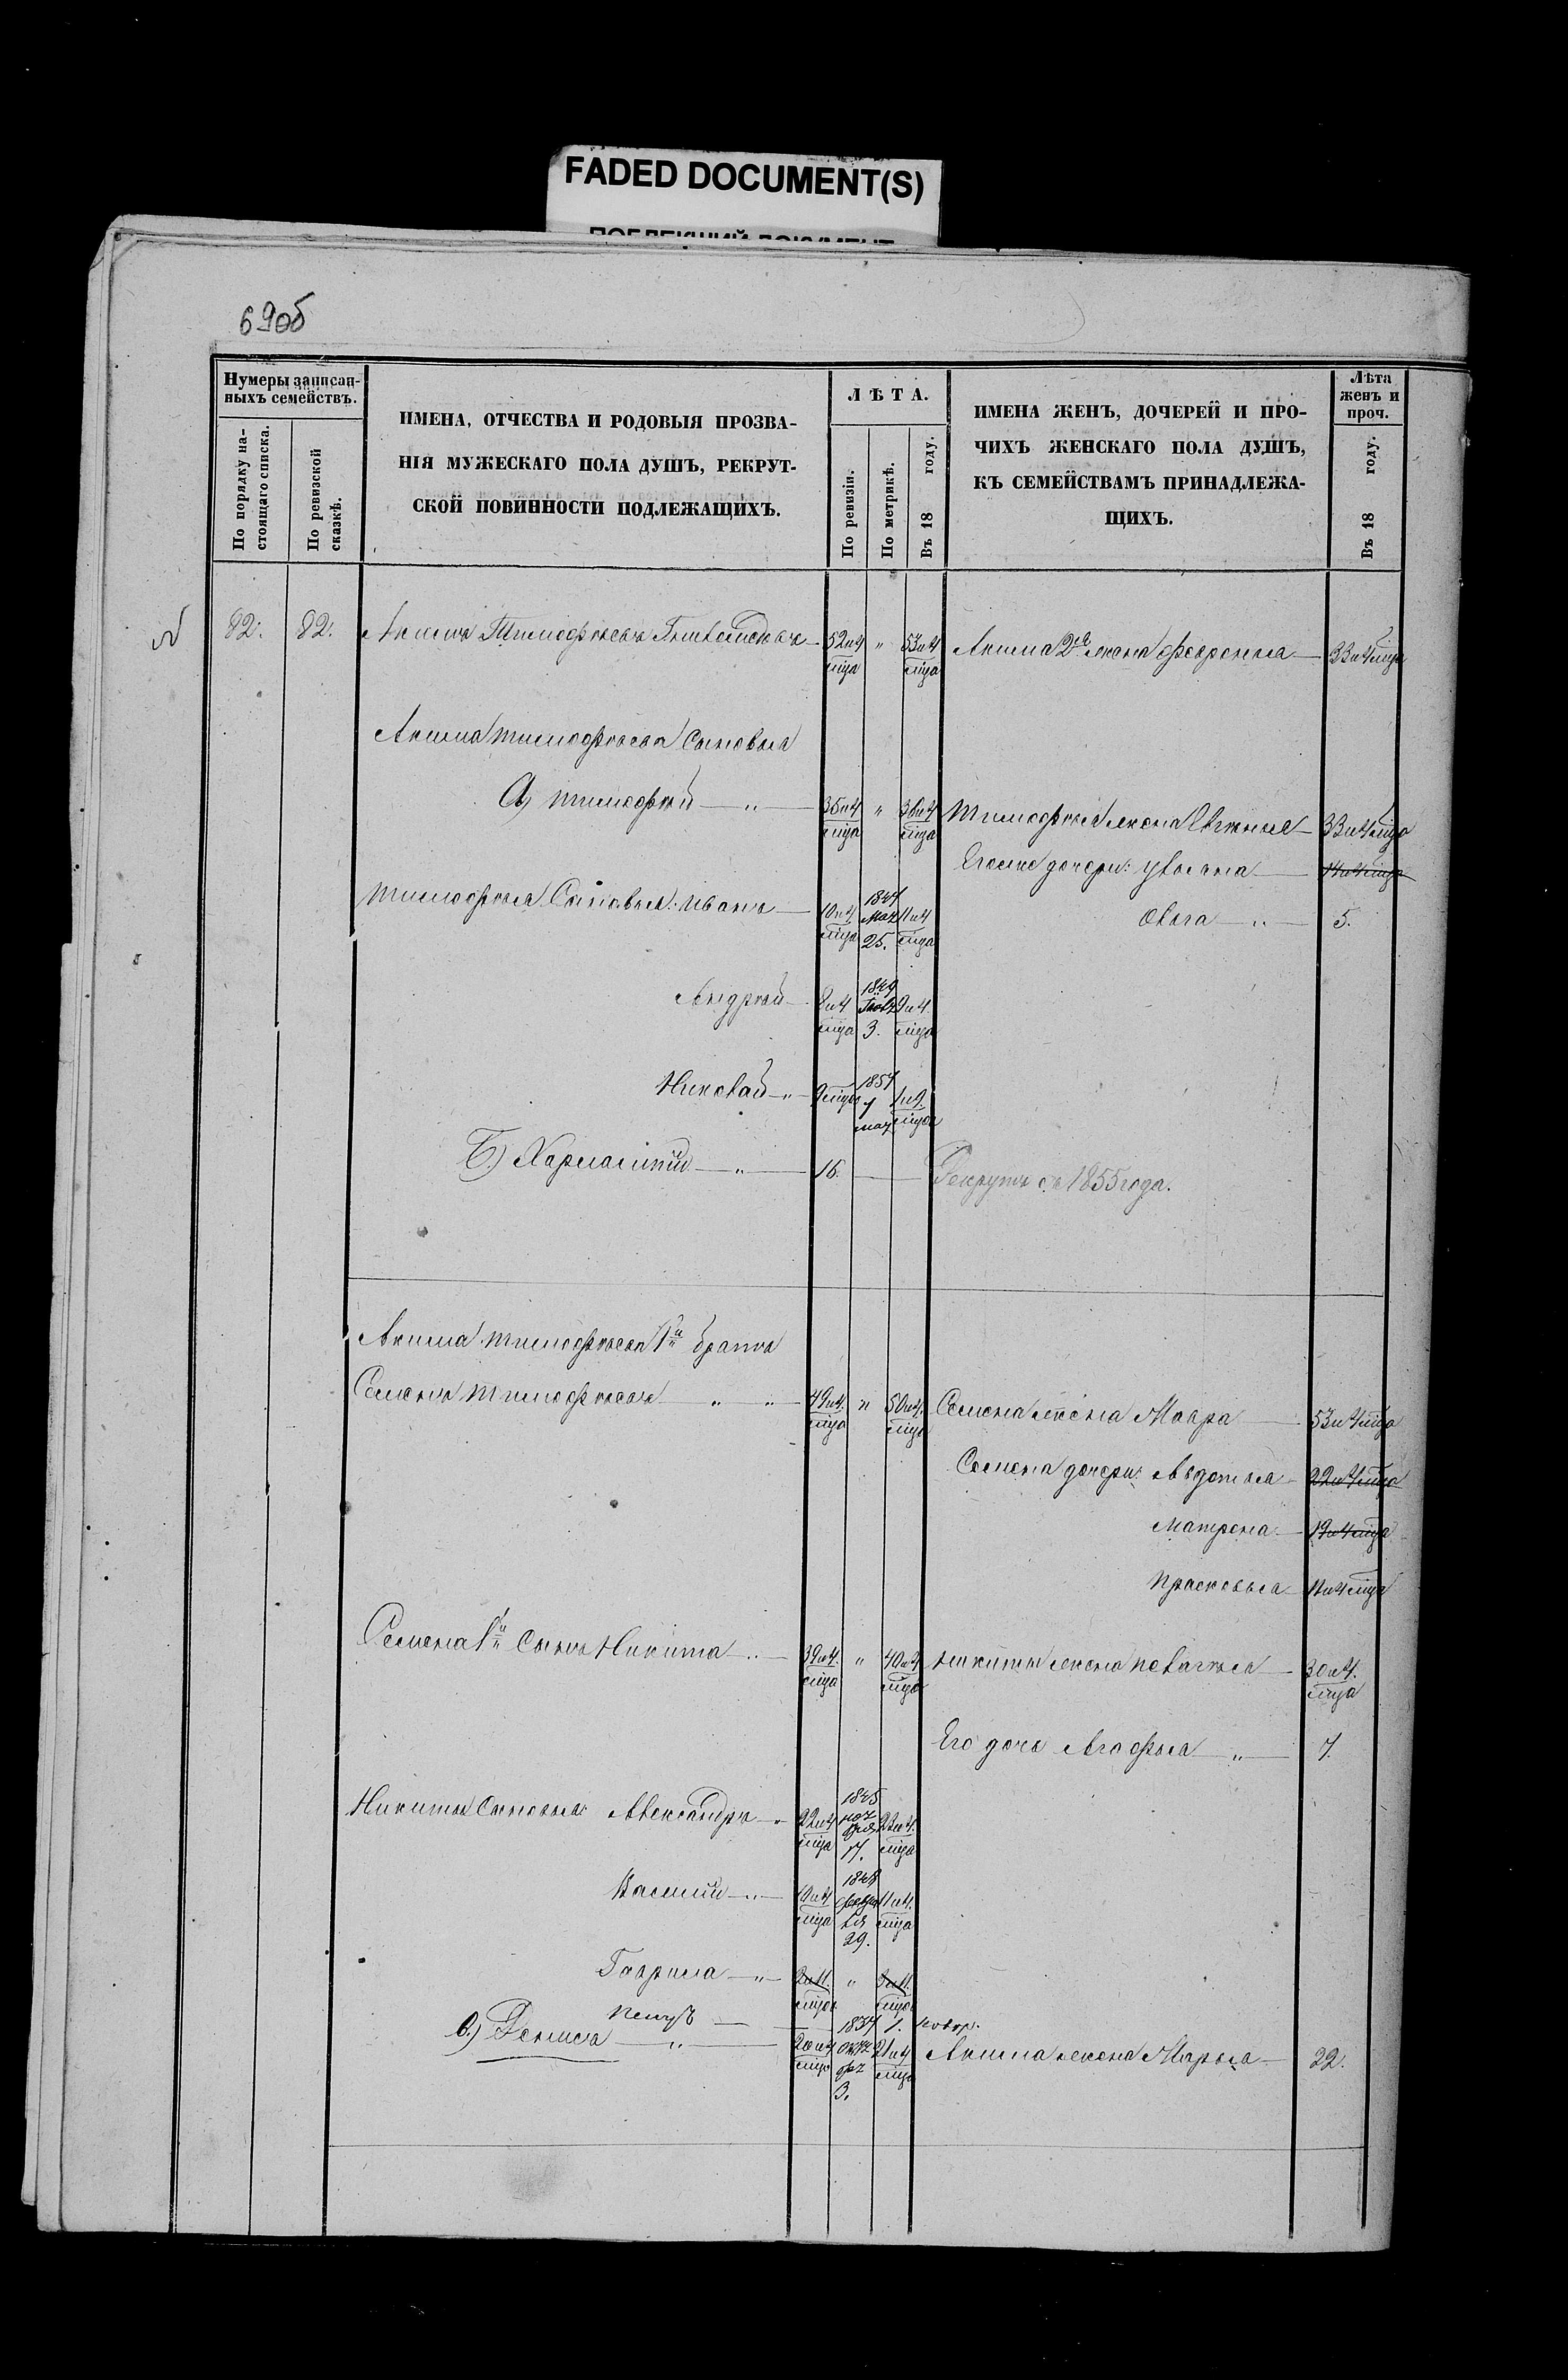 FADED DOCUMENT(S)
69об
Нумеры записан-
ныхъ семействъ.
По порядку на-
стоящаго списка.
По ревизской
сказкѣ.
ИМЕНА, ОТЧЕСТВА И РОДОВЫЯ ПРОЗВА-
НІЯ МУЖЕСКАГО ПОЛА ДУШЪ, РЕКРУТ-
СКОЙ ПОВИННОСТИ ПОДЛЕЖАЩИХЪ.
ЛѢТА.
По ревизіи.
По метрикѣ.
Въ 18 году.
ИМЕНА ЖЕНЪ, ДОЧЕРЕЙ И ПРО-
ЧИХЪ ЖЕНСКАГО ПОЛА ДУШЪ,
КЪ СЕМЕЙСТВАМЪ ПРИНАДЛЕЖА-
ЩИХЪ.
Лѣта
женъ и
проч.
Въ 18 году.
82. 82. Акимъ Тимофѣевъ 52 и 4 мца " 53 и 4 мца Акима 2я жена Февронья 33 и 4 мца
Акима Тимофѣева Сыновья
А) Тимофѣй " 35 и 4 мца " 36 и 4 мца Тимофѣя жена 33 и 4 мца
Егоже дочери: Ульяна 14 и 4 мца
Тимофѣя Сыновья: Иванъ 10 и 4 мца 1847 25. 11 и 4 мца Ольга " 5.
Андрей 8 и 4 мца 1849 3. 9 и 4 мца
Николай " 9 мцъ 1857 мая 1 и 9 мцъ
Б) Харлампий " 16. Рекрутъ съ 1855 года.
Акима Тимофѣева 1й братъ
Семенъ Тимофѣевъ " " 49 и 4 мца " 50 и 4 мца Семена жена Мавра 53 и 4 мца
Семена дочери: Авдотья 22 и 4 мца
Матрена 19 и 4 мца
Прасковья 11 и 4 мца
Семена 1й Сынъ Никита " 39 и 4 мца " 40 и 4 мца Никиты жена Пелагѣя 30 и 4 мца
Его дочь Агафья " 7.
Никиты Сыновья: Александръ " 22 и 4 мца 1845 17. 22 и 4 мца
Василий " 10 и 4 мца 1848 февраля 29. 11 и 4 мца
Гаврила " "
1.
в) Дениса " 20 и 4 мца 1837 3. 21 и 4 мца Акима жена Марья 22.